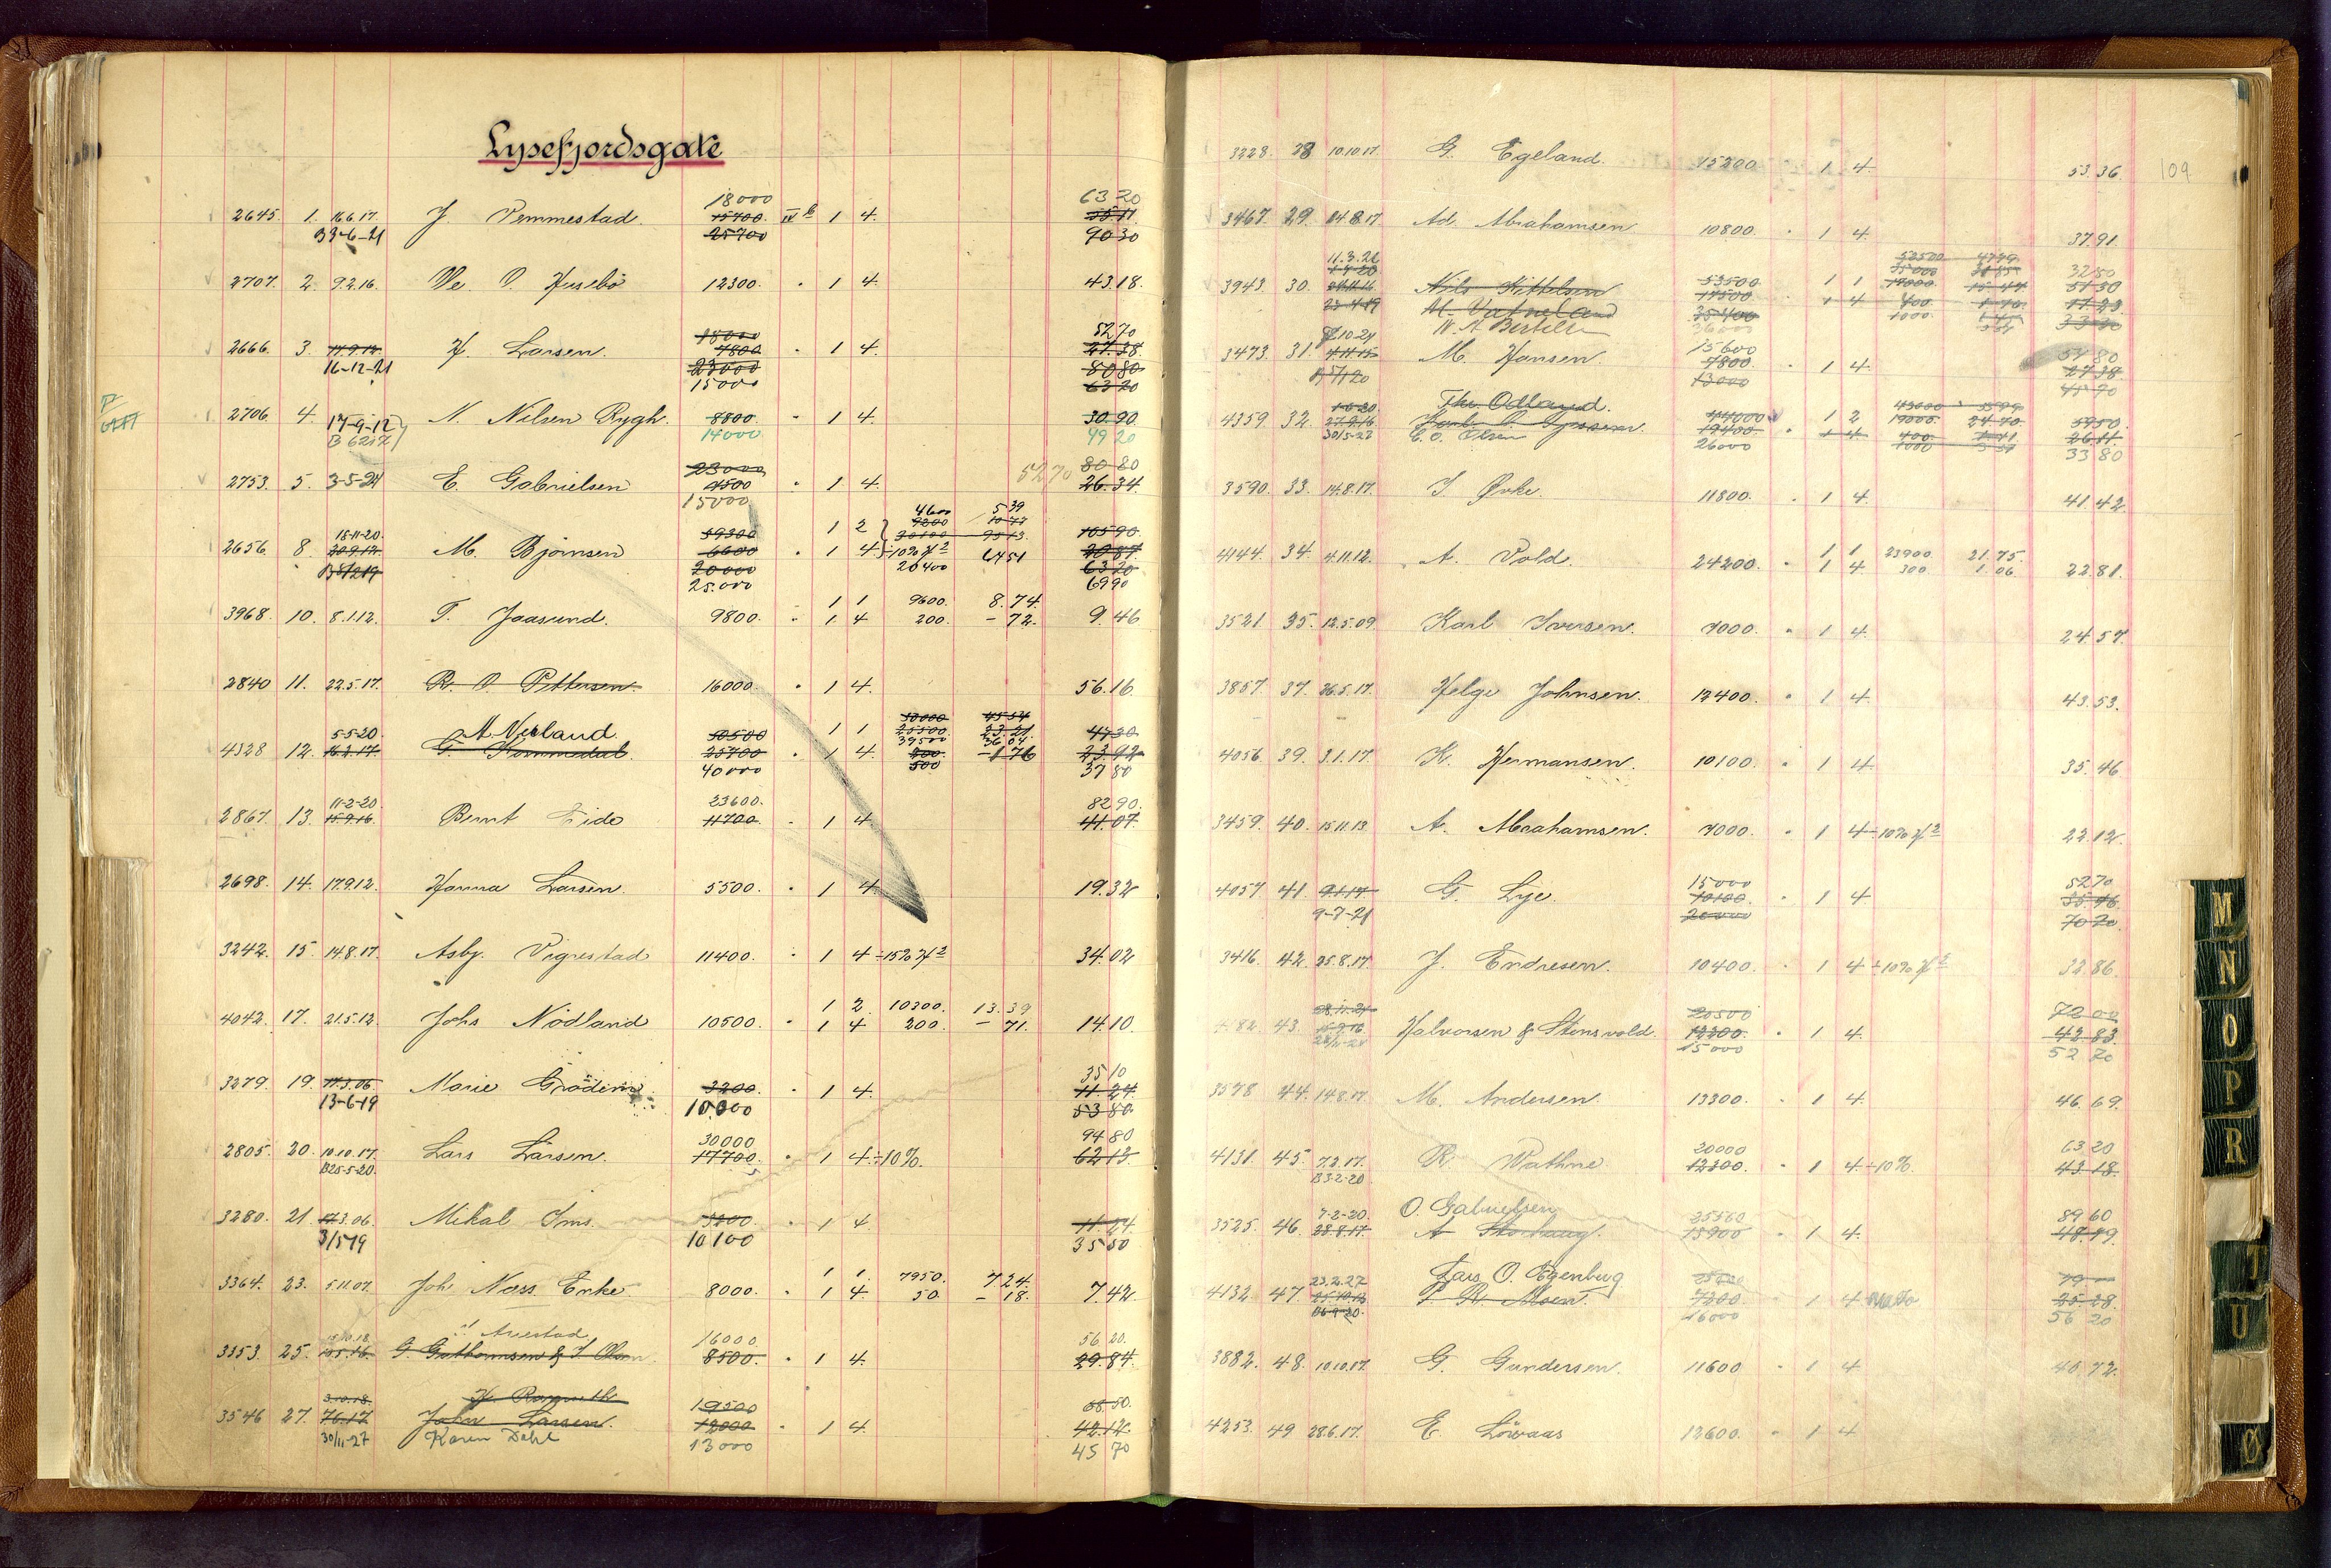 Lysefjordsgate
18000 63 20
2645. 1. 16.6.17. J. Vemmestad. 15700. IV b 1 4. 55 11.
B 3-6-21 25700 90 30
2707. 2. 9.2.16. We. O. Husebö 12300. " 1 4. 43.18.
18000 52 70
2666. 3. 17.9.12. H. Larsen. 7800 " 1 4. 27.38.
16-12-21 23000 80 80
15000 63 20
2706. 4. 17-9-12 N. Nilsen Rygh. 8800. " 1 4. 30.90.
14000 49 20
23000 52 70 80 80
2753. 5. 3-5-24 E. Gabrielsen 7500 " 1 4. 26.34.
15000
4600 5 39
18-11-20. 59300 1 2 9200 10 77 105 90
2656. 8. 20.9.12. M. Bjørnsen 6600 " 1 4 ÷10% H² 64 51 20 87
20000 20400 63 20
25.000 69 90
1 1 9600. 8.74.
3968. 10. 8.1.12. T. Jaasund. 9800. " 1 4 200. – 72. 9.46
2840 11. 22.5.17. R. O. Pettersen 16000. " 1 4. 56.16.
50000 45 54
5-5-20. A. Nerland. 50500 1 1 25500. 23.21 47 30
4328 12. 16.2.17. G. Kommedal. 25700 " 1 4. 200. – 1 76 23.92
40000 500 37 80
11-2-20. 23600. 82 90.
2867. 13. 15.9.16. Bernt Eide 11700. " 1 4. 41.07.
2698. 14. 17.9.12. Hanna Larsen. 5500. " 1 4. 19.32
3242. 15. 14.8.17. Asbj. Vigrestad 11400. " 1 4 ÷15% H² 34.02
1 2. 10300. 13.39
4042. 17. 21.5.12. Johs Nödland 10500. " 1 4 200. – 71. 14.10.
35 10
3279. 19. 17.3.06. Marie Grödem 3200. " 1 4. 11.24.
13-6-19 10.000 53 80
30000 94 80
2805. 20. 10.10.17. Lars Larsen. 17700. " 1 4 ÷10%. 62 13.
B 25-5-20.
3280. 21. 17.3.06. Mikal Ims. 3200. " 1 4. 11.24
3/5 19 10100 35 50
1 1. 7950. 7 24.
3364. 23. 5.11.07. Joh. Næss Enke. 8000. " 1 4. 50. – 18. 7.42
15.10.18. Auestad. 16000 56 20.
3353. 25. G. Guthormsen & J. Olsen. 8500. " 1 4. 29.84.
3.10.18. 19500 68.50.
3546 27. 7.6.17 John Larsen. 12000. " 1 4. 42.12.
30/11-27 Karen Dahl 13000 45 70
109
3228. 28 10.10.17. G. Egeland. 15200. 1 4. 53.36.
3467. 29. 14.8.17. Ad. Abrahamsen 10800. " 1 4. 37.91.
11.3.21 52500 47 79
1-4-20 35000 31 85 32 80
3943. 30. Nils Kittelsen 53500 1 1 51 30
23-4-19 M. Vatneland 17500 1 4 400 17.23
35400 1000 33 20
W. A. Bertelsen 36000
10-24 15600 54 80
3473. 31. 4.11.15 M. Hansen. 7800. " 1 4. 27 38
13000 45 70
1-6-20. Th. Odland. 44000 1 2 43000 55 99 59 50
4359 32. 27.9.16 19400. " 1 4 19000. 24 70. 26.11.
30/5-23 E. O. Olsen 26000 1000 33 80
3590. 33. 14.8.17. J. Ørke. 11800. " 1 4. 41.42
1 1 23900. 21.75.
4144. 34. 4.11.12. A. Vold. 24200. " 1 4. 300. 1.06. 22.81.
3521 35. 12.5.09. Karl Iversen. 7000. " 1 4. 24.57.
3857. 37. 26.5.17. Helge Johnsen. 12400. " 1 4. 43.53.
4056. 39. 3.1.17. K. Hermansen. 10100. " 1 4. 35.46
3459. 40. 15.11.13. A. Abrahamsen. 7000. " 1 4 ÷10% H² 22.12.
15000 52 70
4057. 41. 9.1.17 G. Lye. 10100. " 1 4 35.46.
9-7-21 20000 70 20.
3416. 42. 25.8.17. J. Endresen. 10400. " 1 4 ÷10% H² 32.86.
28.11.21 20500 72 00
4182. 43. Halvorsen & Stensvold. 12200. " 1 4. 42 83.
15000 52 20
3578 44. 14.8.17. M. Andersen. 13300. " 1 4. 46.69.
20000 63 20
4131 45. 7.2.17. R. Wathne. 12300. " 1 4 ÷10%. 43.18.
B 3-2-20.
7-2-20. O. Gabrielsen 25500 89 60
3525. 46. 28.8.17. A. Storhaug. 13900 " 1 4. 48.79.
23.2.27 Lars O. Egenberg
4132. 47. 25.10.12 P. R. Moen. 7200. " 1 4 25.28.
16000 56 20
3882. 48. 10.10.17. G. Gundersen. 11600 " 1 4 40.72.
4253. 49 28.6.17. E. Löwaas 12600. " 1 4
M
N
O
P
R
T
U
Ø